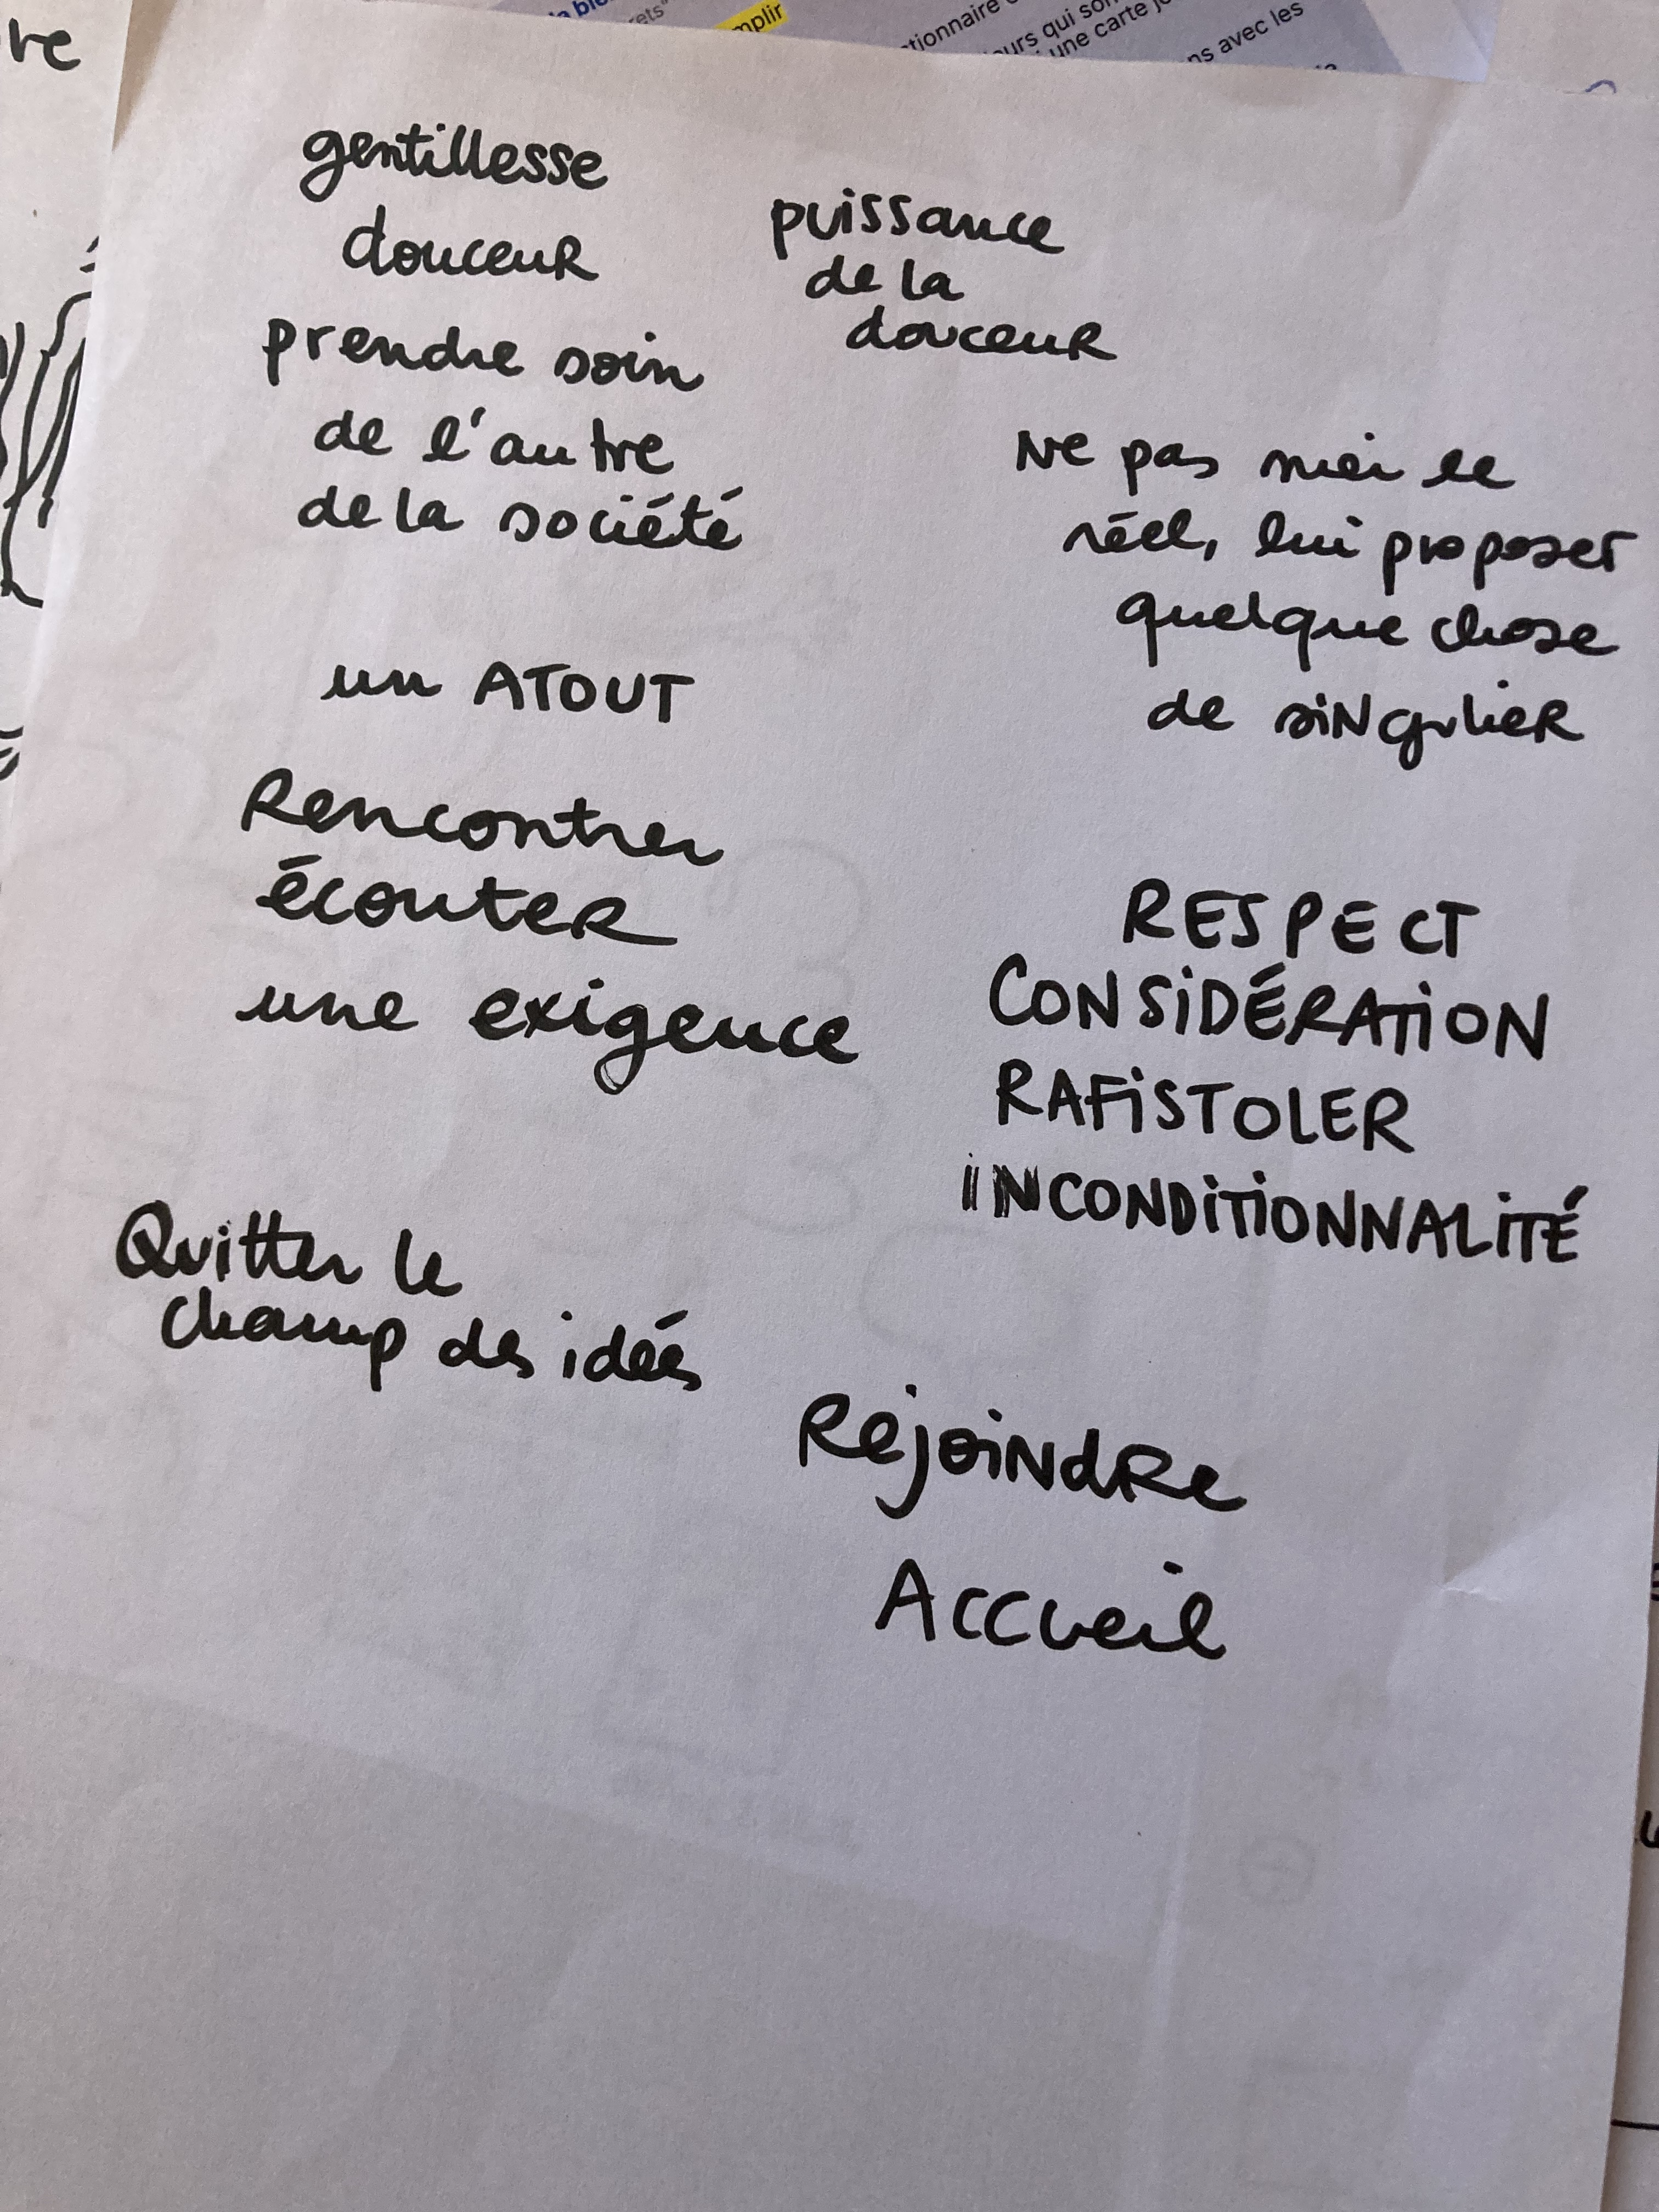 re
mplir
tionnaire
urs qui son
une carte
ns avec les
gentillesse
douceur
prendre soin
de l'autre
de la société
puissance
de la
douceur
Ne pas nier le
réel, lui proposer
quelque chose
de singulier
un ATOUT
Rencontrer
écouter
une exigence
RESPECT
CONSIDÉRATION
RAFISTOLER
INCONDITIONNALITÉ
Quitter le
champ des idées
Rejoindre
Accueil